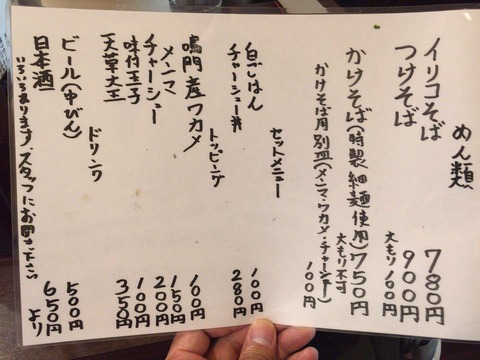 めん類
イリコそば 780円
つけそば 900円
大もり 100円
かけそば(特製細麺使用) 750円
大もり不可
かけそば用別皿(メンマ・ワカメ・チャーシュー) 100円
セットメニュー
白ごはん 100円
チャーシュー丼 280円
トッピング
鳴門産ワカメ 100円
メンマ 150円
チャーシュー 200円
味付玉子 100円
天草大王 350円
ドリンク
ビール(中びん) 500円
日本酒 650円より
いろいろあります。スタッフにお聞き下さい